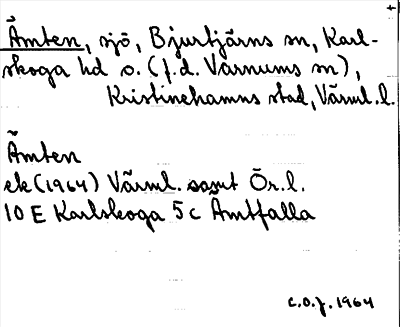 Ämten, sjö, Bjurtjärns sn, Karl-
skoga hd o. (f.d. Varnums sn),
Kristinehamns stad, Värml. l.
Ämten
ek (1964) Värml. samt Ör. l.
10 E Karlskoga 5c Ämtfalla
C.O.J. 1964